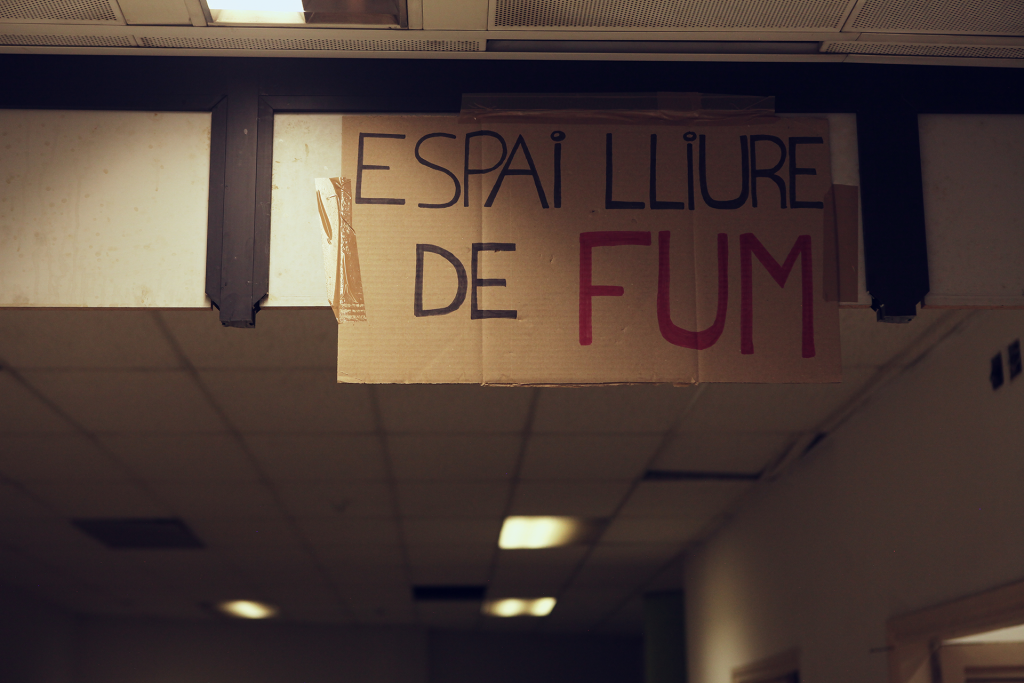 ESPAi LLiURE
DE FUM